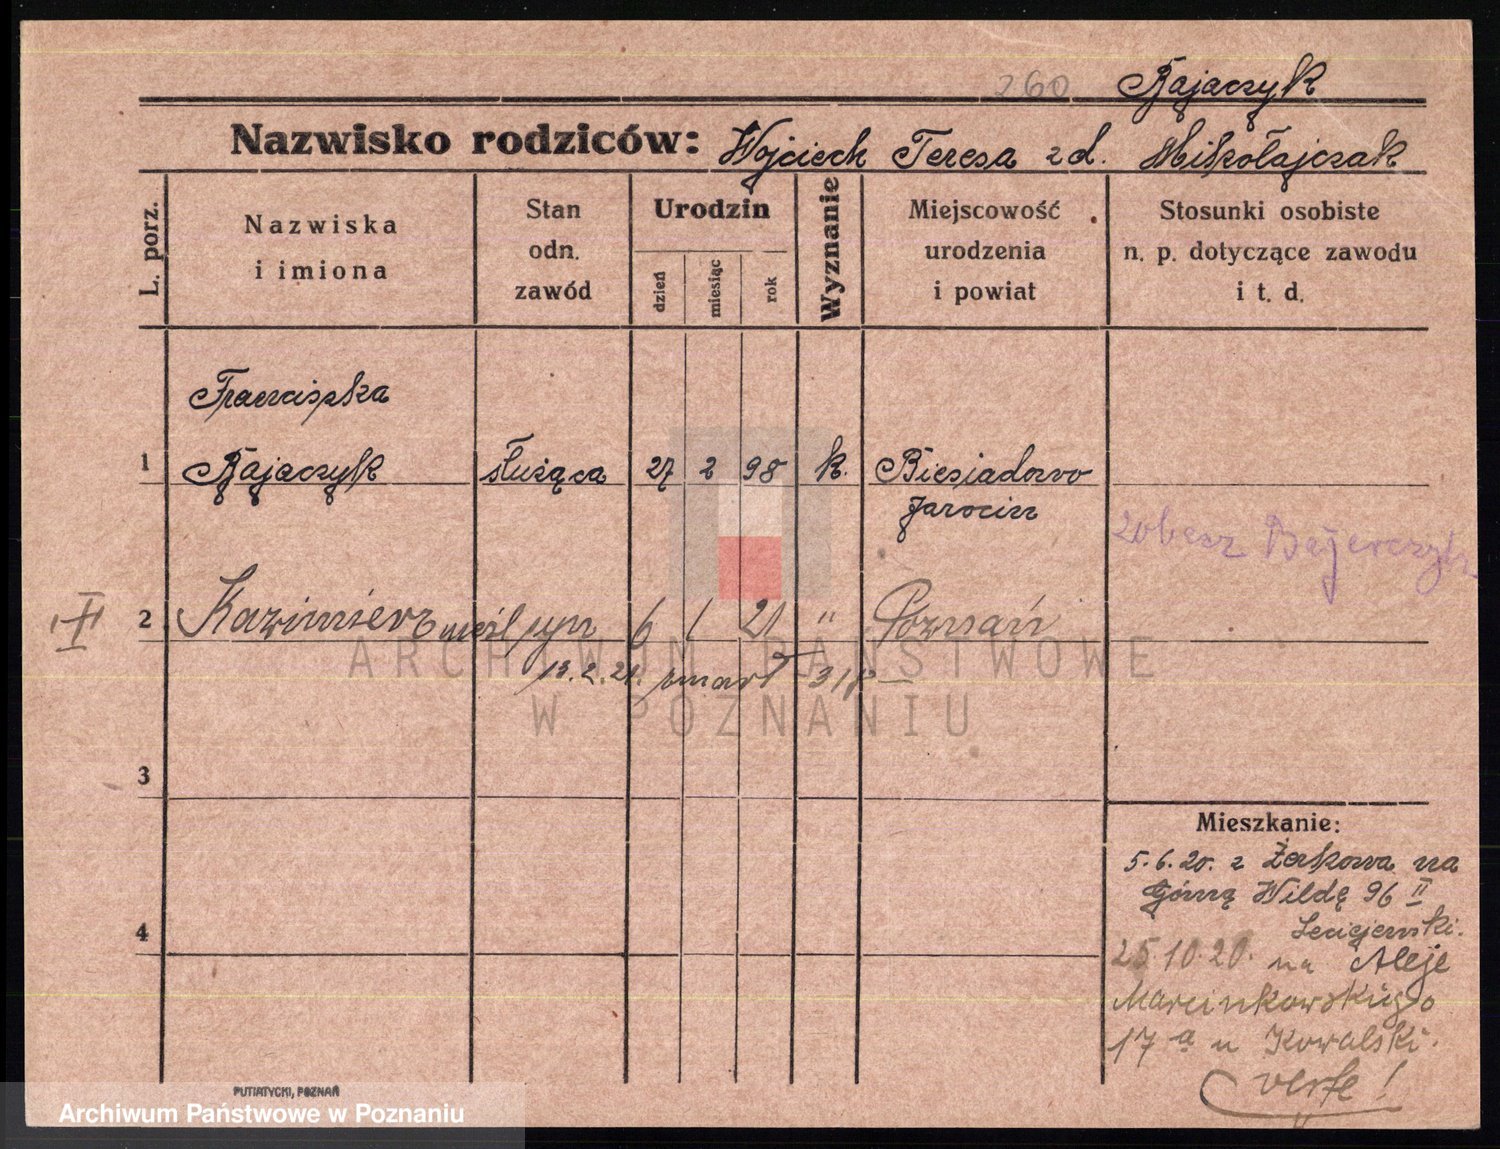 260 Bajaczyk
Nazwisko rodziców: Wojciech Teresa z d. Mikołajczak
L. porz.
Nazwiska
i imiona
Stan
odn.
zawód
Urodzin
dzień
miesiąc
rok
Wyznanie
Miejscowość
urodzenia
i powiat
Stosunki osobiste
n. p. dotyczące zawodu
i t. d.
Franciszka
1 Bajaczyk służąca 27 2 98 k. Biesiadowo
Jarocin
zobacz Bajerczyk
II 2 Kazimierz syn 6 1 21 " Poznań
13.2.21. zmarł
3
4
Mieszkanie:
5.6.20. z Żerkowa na
Górną Wildę 96 II
25.10.20. na Aleje
Marcinkowskiego
17 a u Kowalski.
verte!
PUTIATYCKI, POZNAŃ
ARCHIWUM PAŃSTWOWE
W POZNANIU
Archiwum Państwowe w Poznaniu